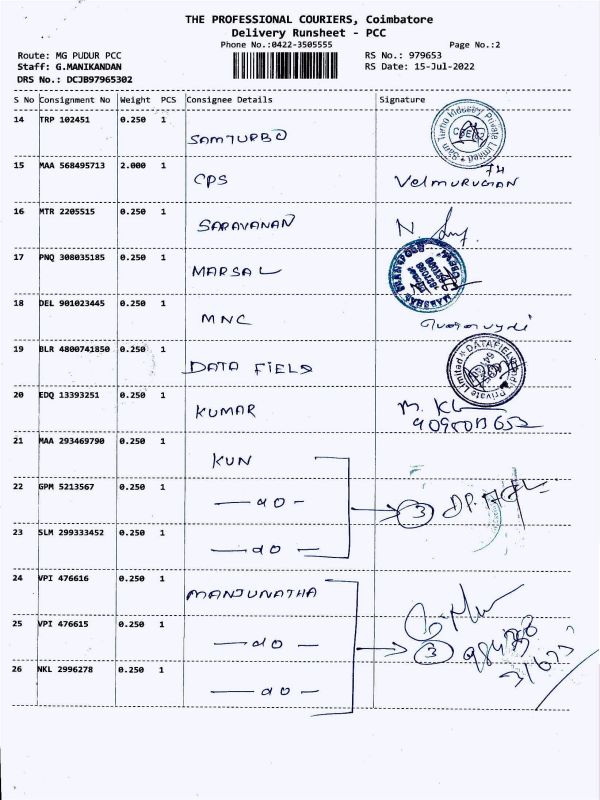 THE PROFESSIONAL COURIERS, Coimbatore
Delivery Runsheet - PCC
Phone No.:0422-3505555
Page No.:2
Route: MG PUDUR PCC
RS No.: 979653
Staff: G.MANIKANDAN
RS Date: 15-Jul-2022
DRS No.: DCJB97965302
S No Consignment No Weight PCS Consignee Details Signature
14 TRP 102451 0.250 1 SAMTURBO
15 MAA 568495713 2.000 1 CPS VelMURUGAN
16 MTR 2205515 0.250 1 SARAVANAN N.
17 PNQ 308035185 0.250 1 MARSAL
18 DEL 901023445 0.250 1 MNC
19 BLR 4800741850 0.250 1 DATA FIELD
20 EDQ 13393251 0.250 1 KUMAR
21 MAA 293469790 0.250 1 KUN
22 GPM 5213567 0.250 1 — do — 3
23 SLM 299333452 0.250 1 — do —
24 VPI 476616 0.250 1 MANJUNATHA
25 VPI 476615 0.250 1 — do — 3
26 NKL 2996278 0.250 1 — do —